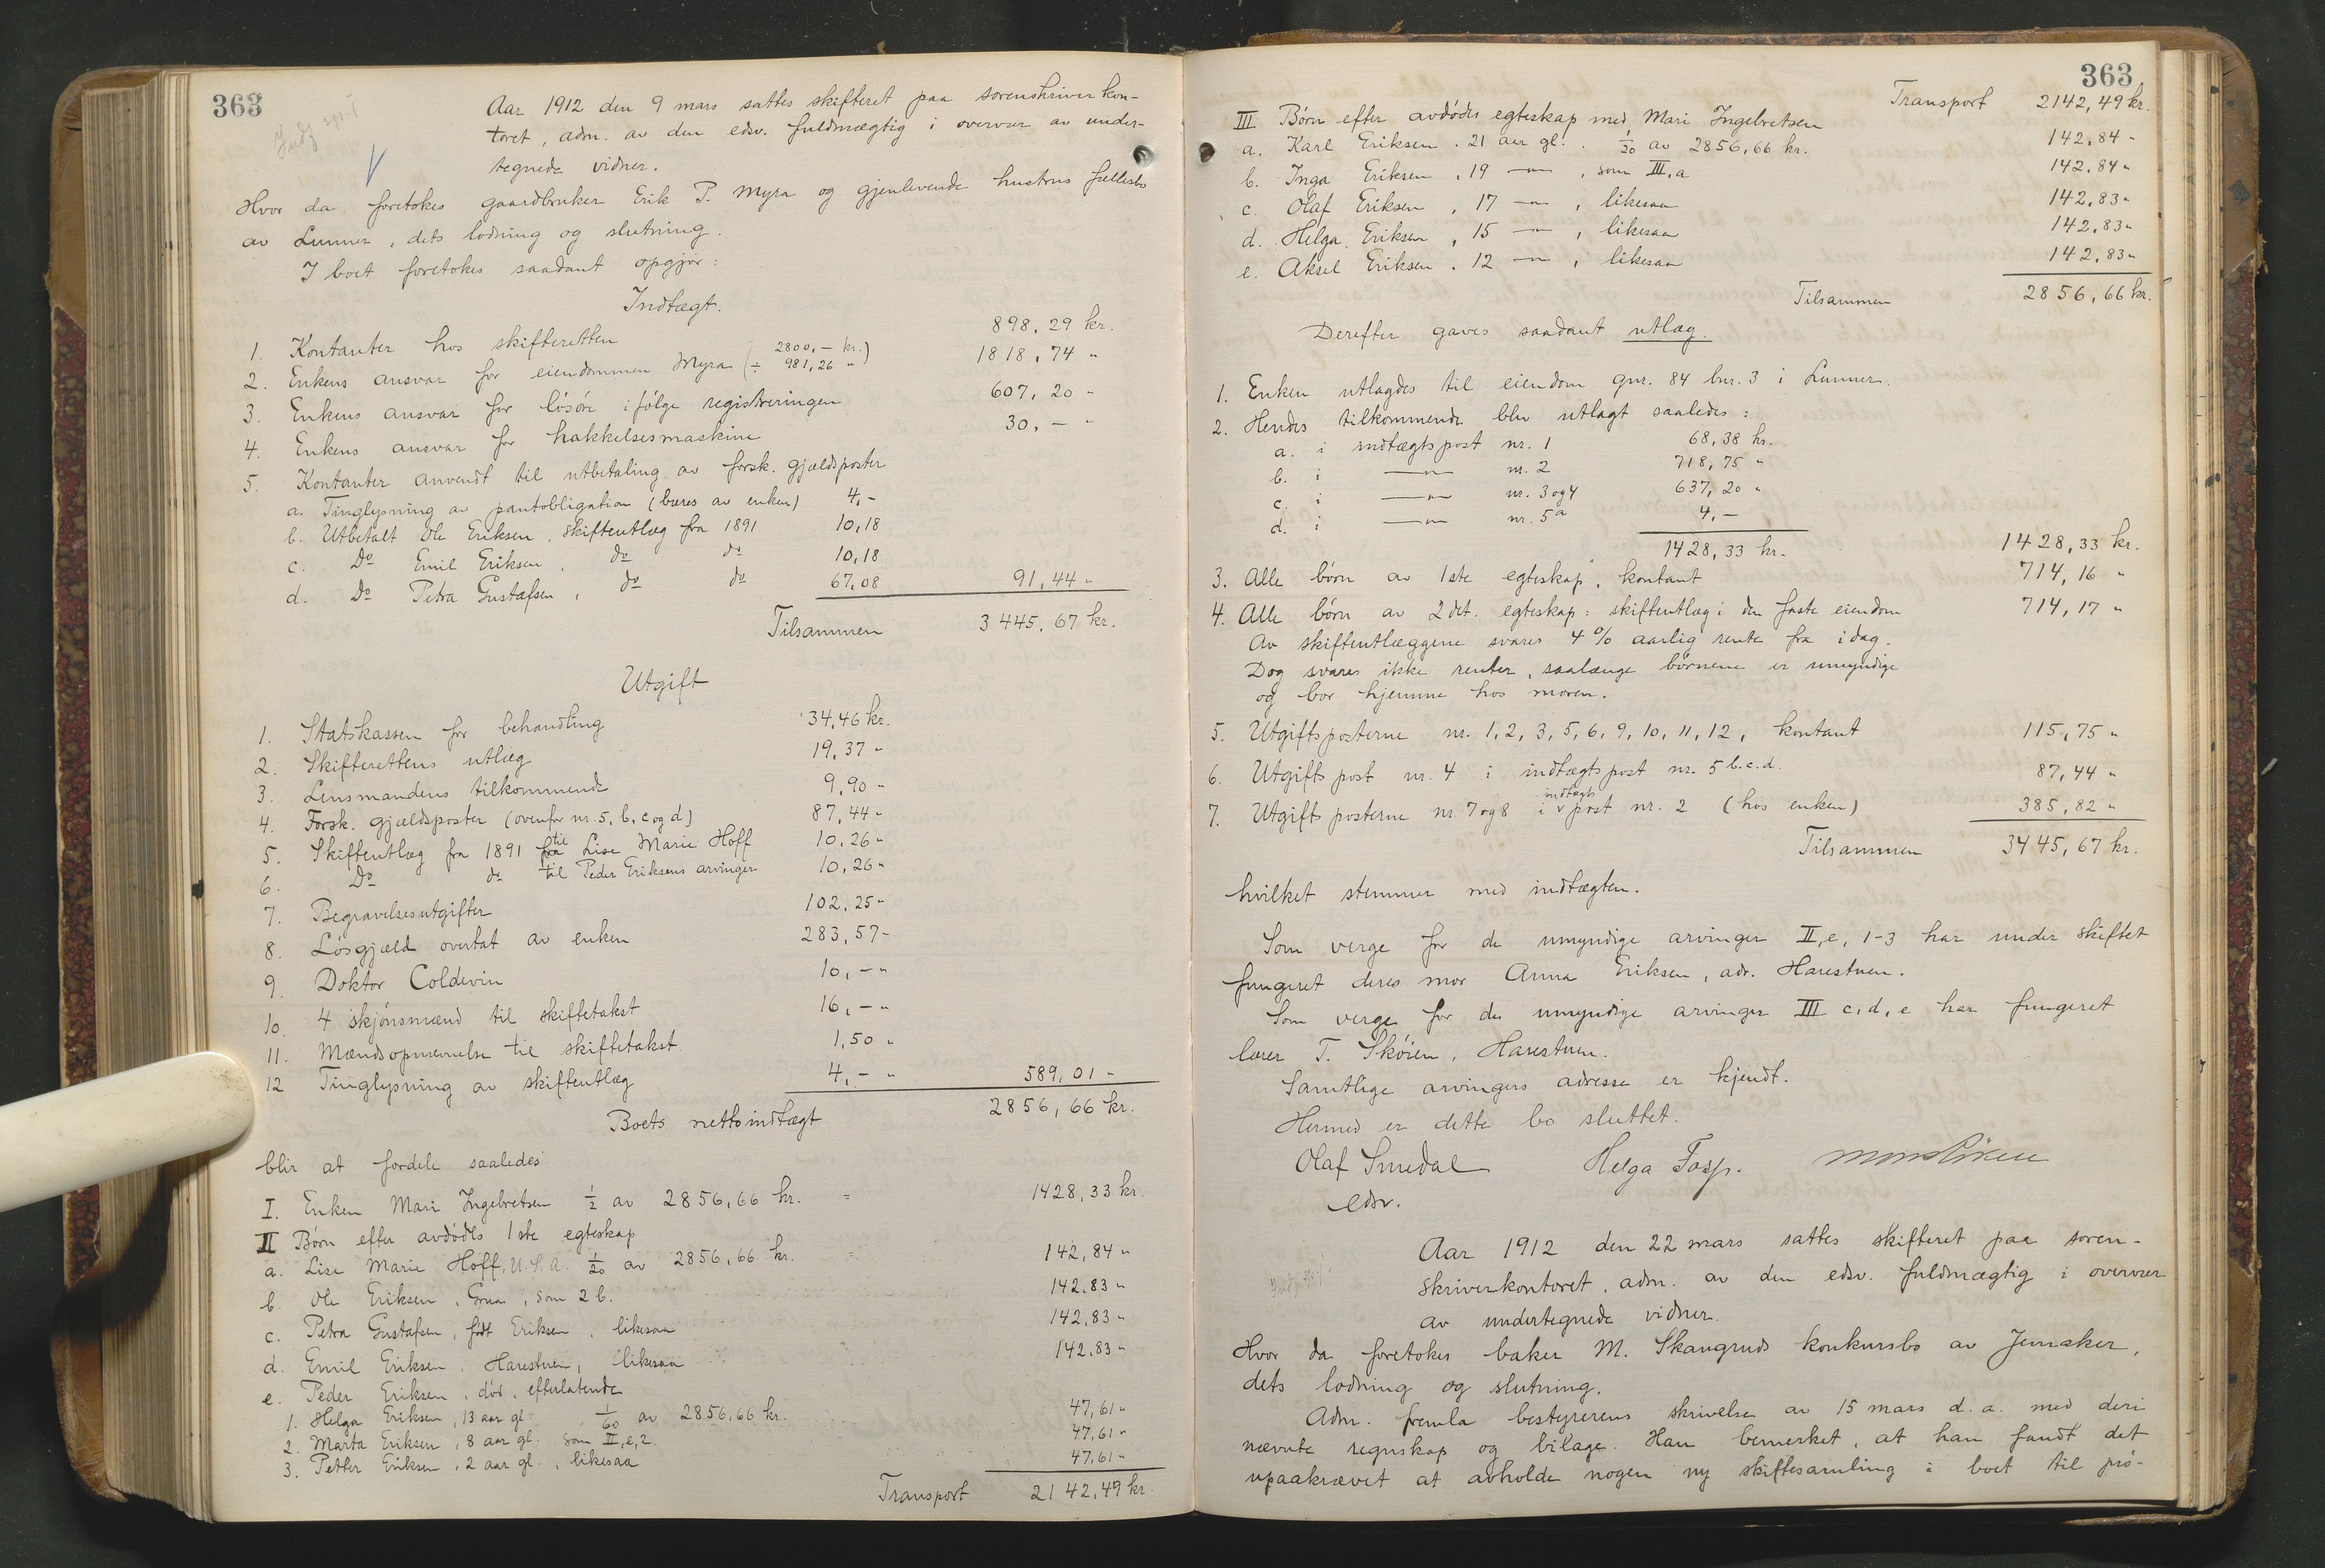 363
Aar 1912 den 9 mars sattes skifteret paa sorenskriverkon-
toret, adm. av den edsv. fuldmægtig i overvær av under-
tegnede vidner.
Hvor da foretokes gaardbruker Erik P. Myra og gjenlevende hustrus fællesbo
av Lunner, dets lodning og slutning.
I boet foretokes saadant opgjør:
Indtægt.
1. Kontanter hos skifteretten 898,29 kr.
2. Enkens ansvar for eiendommen Myra (2800,- kr. ÷ 981,26 ") 1818,74 "
3. Enkens ansvar for løsøre ifølge registreringen 607,20 "
4. Enkens ansvar for hakkelsesmaskine 30,- "
5. Kontanter anvendt til utbetaling av forsk. gjældsposter
a. Tinglysning av pantobligation (bæres av enken) 4,-
b. Utbetalt Ole Eriksen, skifteutlæg fra 1891 10,18
c. Do Emil Eriksen, do do 10,18
d. Do Petra Gustafsen, do do 67,08 91,44 "
Tilsammen 3445,67 kr.
Utgift
1. Statskassen for behandling 34,46 kr.
2. Skifterettens utlæg 19,37 "
3. Lensmandens tilkommende 9,90 "
4. Forsk. gjældsposter (ovenfor nr. 5, b, c og d) 87,44 "
5. Skifteutlæg fra 1891 til Lise Marie Hoff 10,26 "
6. Do do til Peder Eriksens arvinger 10,26 "
7. Begravelsesutgifter 102,25 "
8. Løsgjæld overtat av enken 283,57 "
9. Doktor Coldevin 10,- "
10. 4 skjønsmænd til skiftetakst 16,- "
11. Mændsopnævnelse til skiftetakst 1,50 "
12 Tinglysning av skifteutlæg 4,- " 589,01 "
Boets nettoindtægt 2856,66 kr.
blir at fordele saaledes
I. Enken Mari Ingebretsen 1/2 av 2856,66 kr. = 1428,33 kr.
II Børn efter avdødes 1ste egteskap
a. Lise Marie Hoff, U.S.A. 1/20 av 2856,66 kr. = 142,84 "
b. Ole Eriksen, Grua, som 2 b. 142,83 "
c. Petra Gustafsen, født Eriksen, likesaa 142,83 "
d. Emil Eriksen, Harestuen, likesaa 142,83 "
e. Peder Eriksen, død, efterlatende
1. Helga Eriksen, 13 aar gl. 1/60 av 2856,66 kr. 47,61 "
2. Marta Eriksen, 8 aar gl. som II, e, 2 47,61 "
3. Petter Eriksen, 2 aar gl., likesaa 47,61 "
Transport 2142,49 kr.
363
Transport 2142,49 kr.
III Børn efter avdødes egteskap med Mari Ingebretsen
a. Karl Eriksen. 21 aar gl. 1/20 av 2856,66 kr. 142,84 "
b. Inga Eriksen, 19 —"—, som III, a 142,84 "
c. Olaf Eriksen, 17 —"—, likesaa 142,83 "
d. Helga Eriksen, 15 —"—, likesaa 142,83 "
e. Aksel Eriksen. 12 —"—, likesaa 142,83 "
Tilsammen 2856,66 kr.
Derefter gaves saadant utlæg.
1. Enken utlagdes til eiendom gnr. 84 bnr. 3 i Lunner.
2. Hendes tilkommende blev utlagt saaledes:
a. i indtægtspost nr. 1 68,38 kr.
b. i —"— nr. 2 718,75 "
c. i —"— nr. 3 og 4 637,20 "
d. i —"— nr. 5a 4,-
1428,33 kr. 1428,33 kr.
3. Alle børn av 1ste egteskap, kontant 714,16 "
4. Alle børn av 2det. egteskap: skifteutlæg i den faste eiendom 714,17 "
Av skifteutlæggene svares 4% aarlig rente fra idag.
Dog svares ikke renter, saalænge børnene er umyndige
og bor hjemme hos moren.
5. Utgiftsposterne nr. 1, 2, 3, 5, 6, 9, 10, 11, 12, kontant 115,75 "
6. Utgiftspost nr. 4 i indtægtspost nr. 5 b.c.d. 87,44 "
7. Utgiftsposterne nr. 7 og 8 i indtægts post nr. 2 (hos enken) 385,82 "
Tilsammen 3445,67 kr.
hvilket stemmer med indtægten.
Som verge for de umyndige arvinger II, e, 1-3 har under skiftet
fungeret deres mor Anna Eriksen, adr. Harestuen.
Som verge for de umyndige arvinger III c, d, e har fungeret
lærer T. Skøien, Harestuen.
Samtlige arvingers adresse er kjendt.
Hermed er dette bo sluttet.
Olaf Smedal Helga Fosp.
edsv.
Aar 1912 den 22 mars sattes skifteret paa soren-
skriverkontoret, adm. av den edsv. fuldmægtig i overvær
av undertegnede vidner.
Hvor da foretokes baker M. Skangruds konkursbo av Jevnaker,
dets lodning og slutning.
Adm. fremla bestyrerens skrivelse av 15 mars d.a. med deri
nævnte regnskap og bilage. Han bemerket, at han fandt det
upaakrævet at avholde nogen ny skiftesamling i boet til prø-